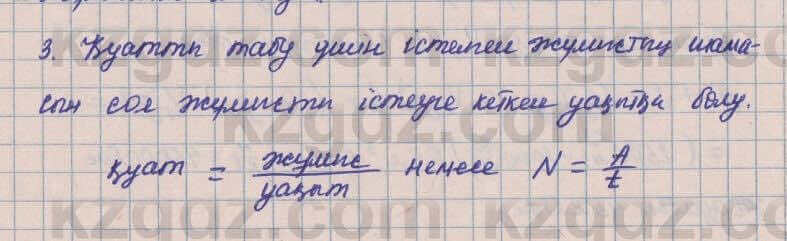 3. Қуатты табу үшін істелген жұмыстың шама-
сын сол жұмысты істеуге кеткен уақытқа бөлу.
қуат = жұмыс / уақыт немесе N = A / t
kzgdz.com